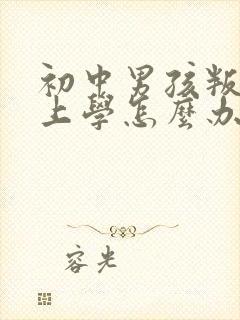 初中男孩叛
上學怎麼办
容光